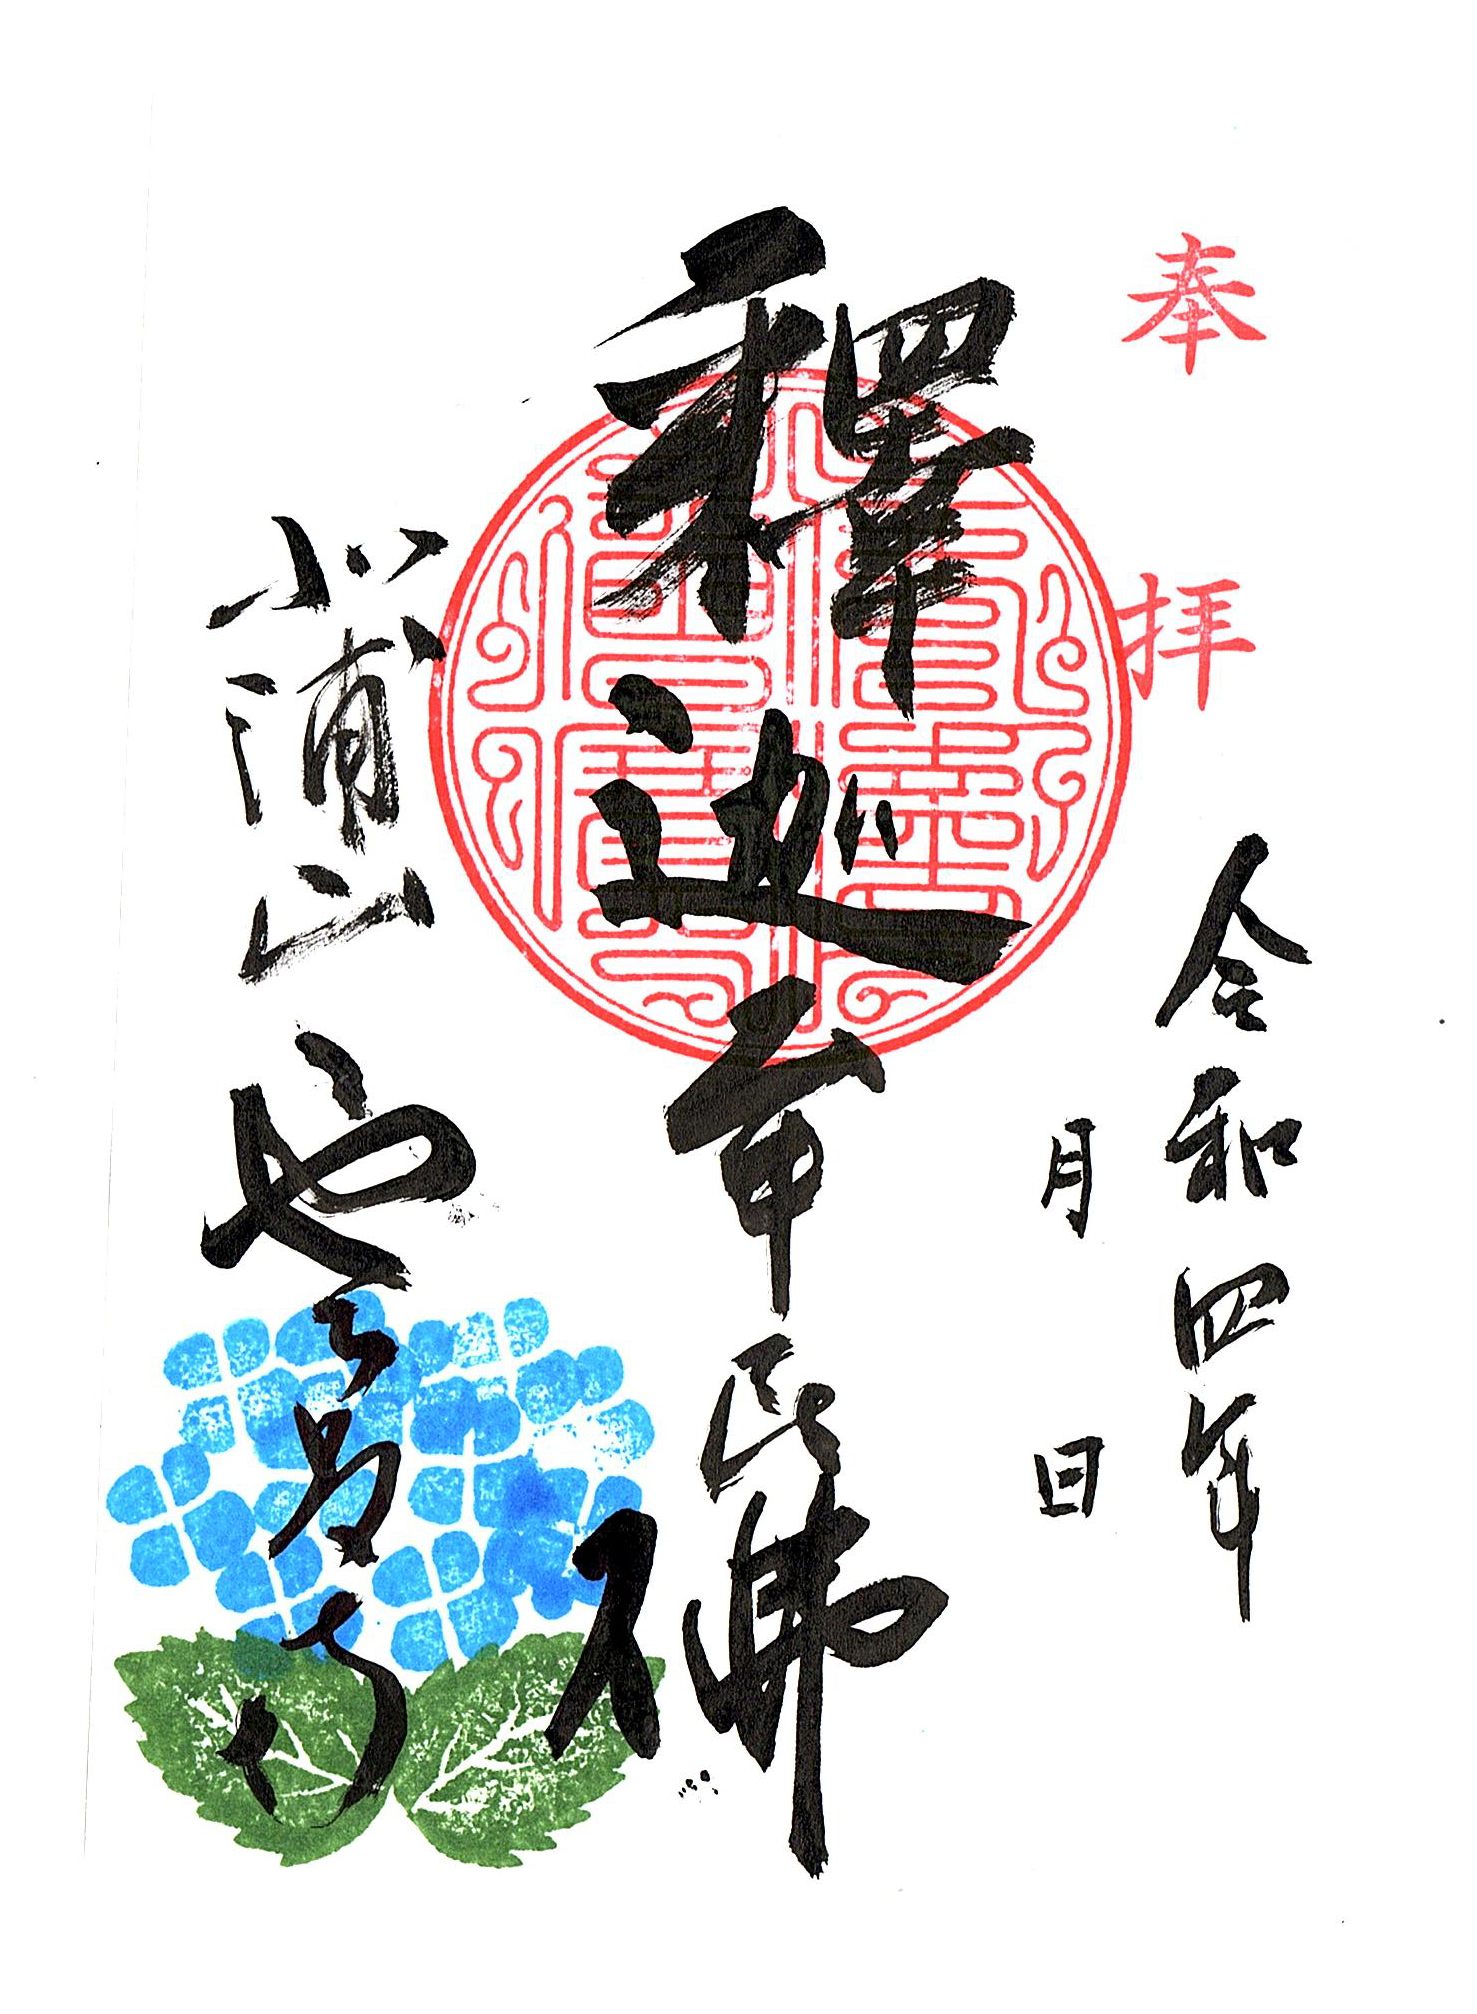 奉拝
令和四年
月 日
釋迦牟尼佛
北浦山 雲昌寺